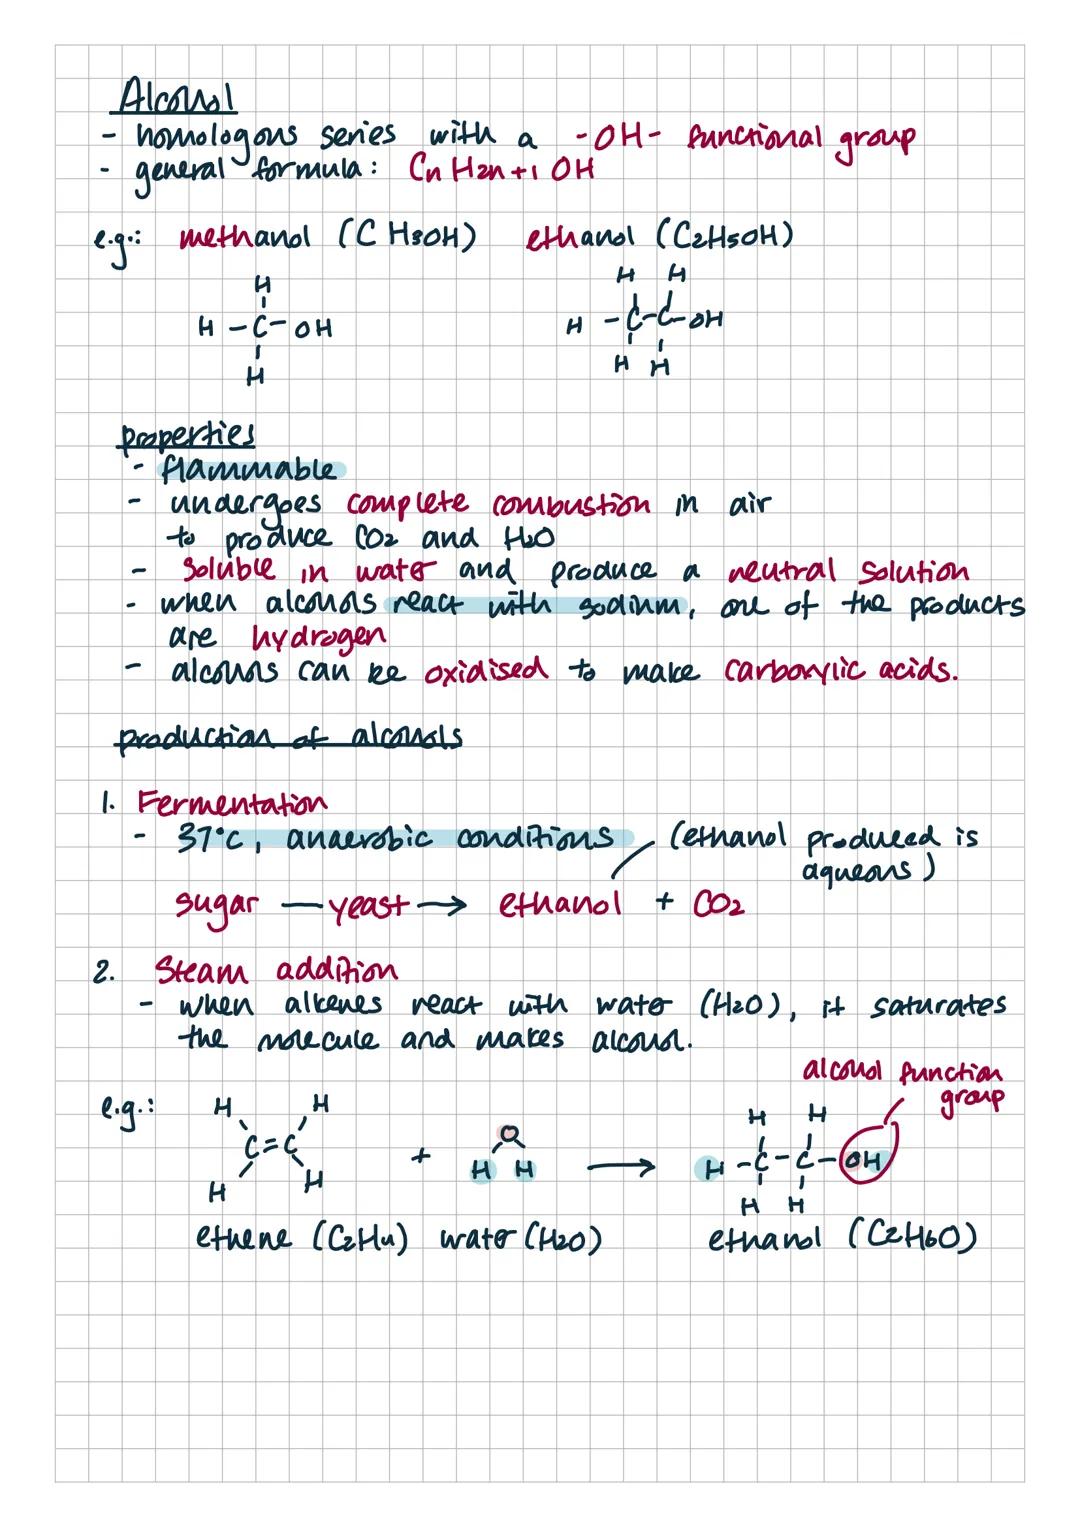 Alcohol
- homologous series with a -OH- functional group
- general formula: CnH2n+1 OH
e.g.: methanol (CH3OH) ethanol (C2H5OH)
H
H - C - OH
H
H H
H - C - C - OH
H H
properties
- flammable
- undergoes complete combustion in air
to produce CO2 and H2O
- soluble in water and produce a neutral solution
- when alcohols react with sodium, one of the products
are hydrogen
- alcohols can be oxidised to make carboxylic acids.
production of alcohols
1. Fermentation
- 37°C, anaerobic conditions (ethanol produced is
aqueous)
sugar —yeast→ ethanol + CO2
2. Steam addition
- when alkenes react with water (H2O), it saturates
the molecule and makes alcohol.
alcohol function
group
e.g.:
H H
C=C
H H
+
O
H H
→
H H
H - C - C - OH
H H
ethene (C2H4) water (H2O) ethanol (C2H6O)